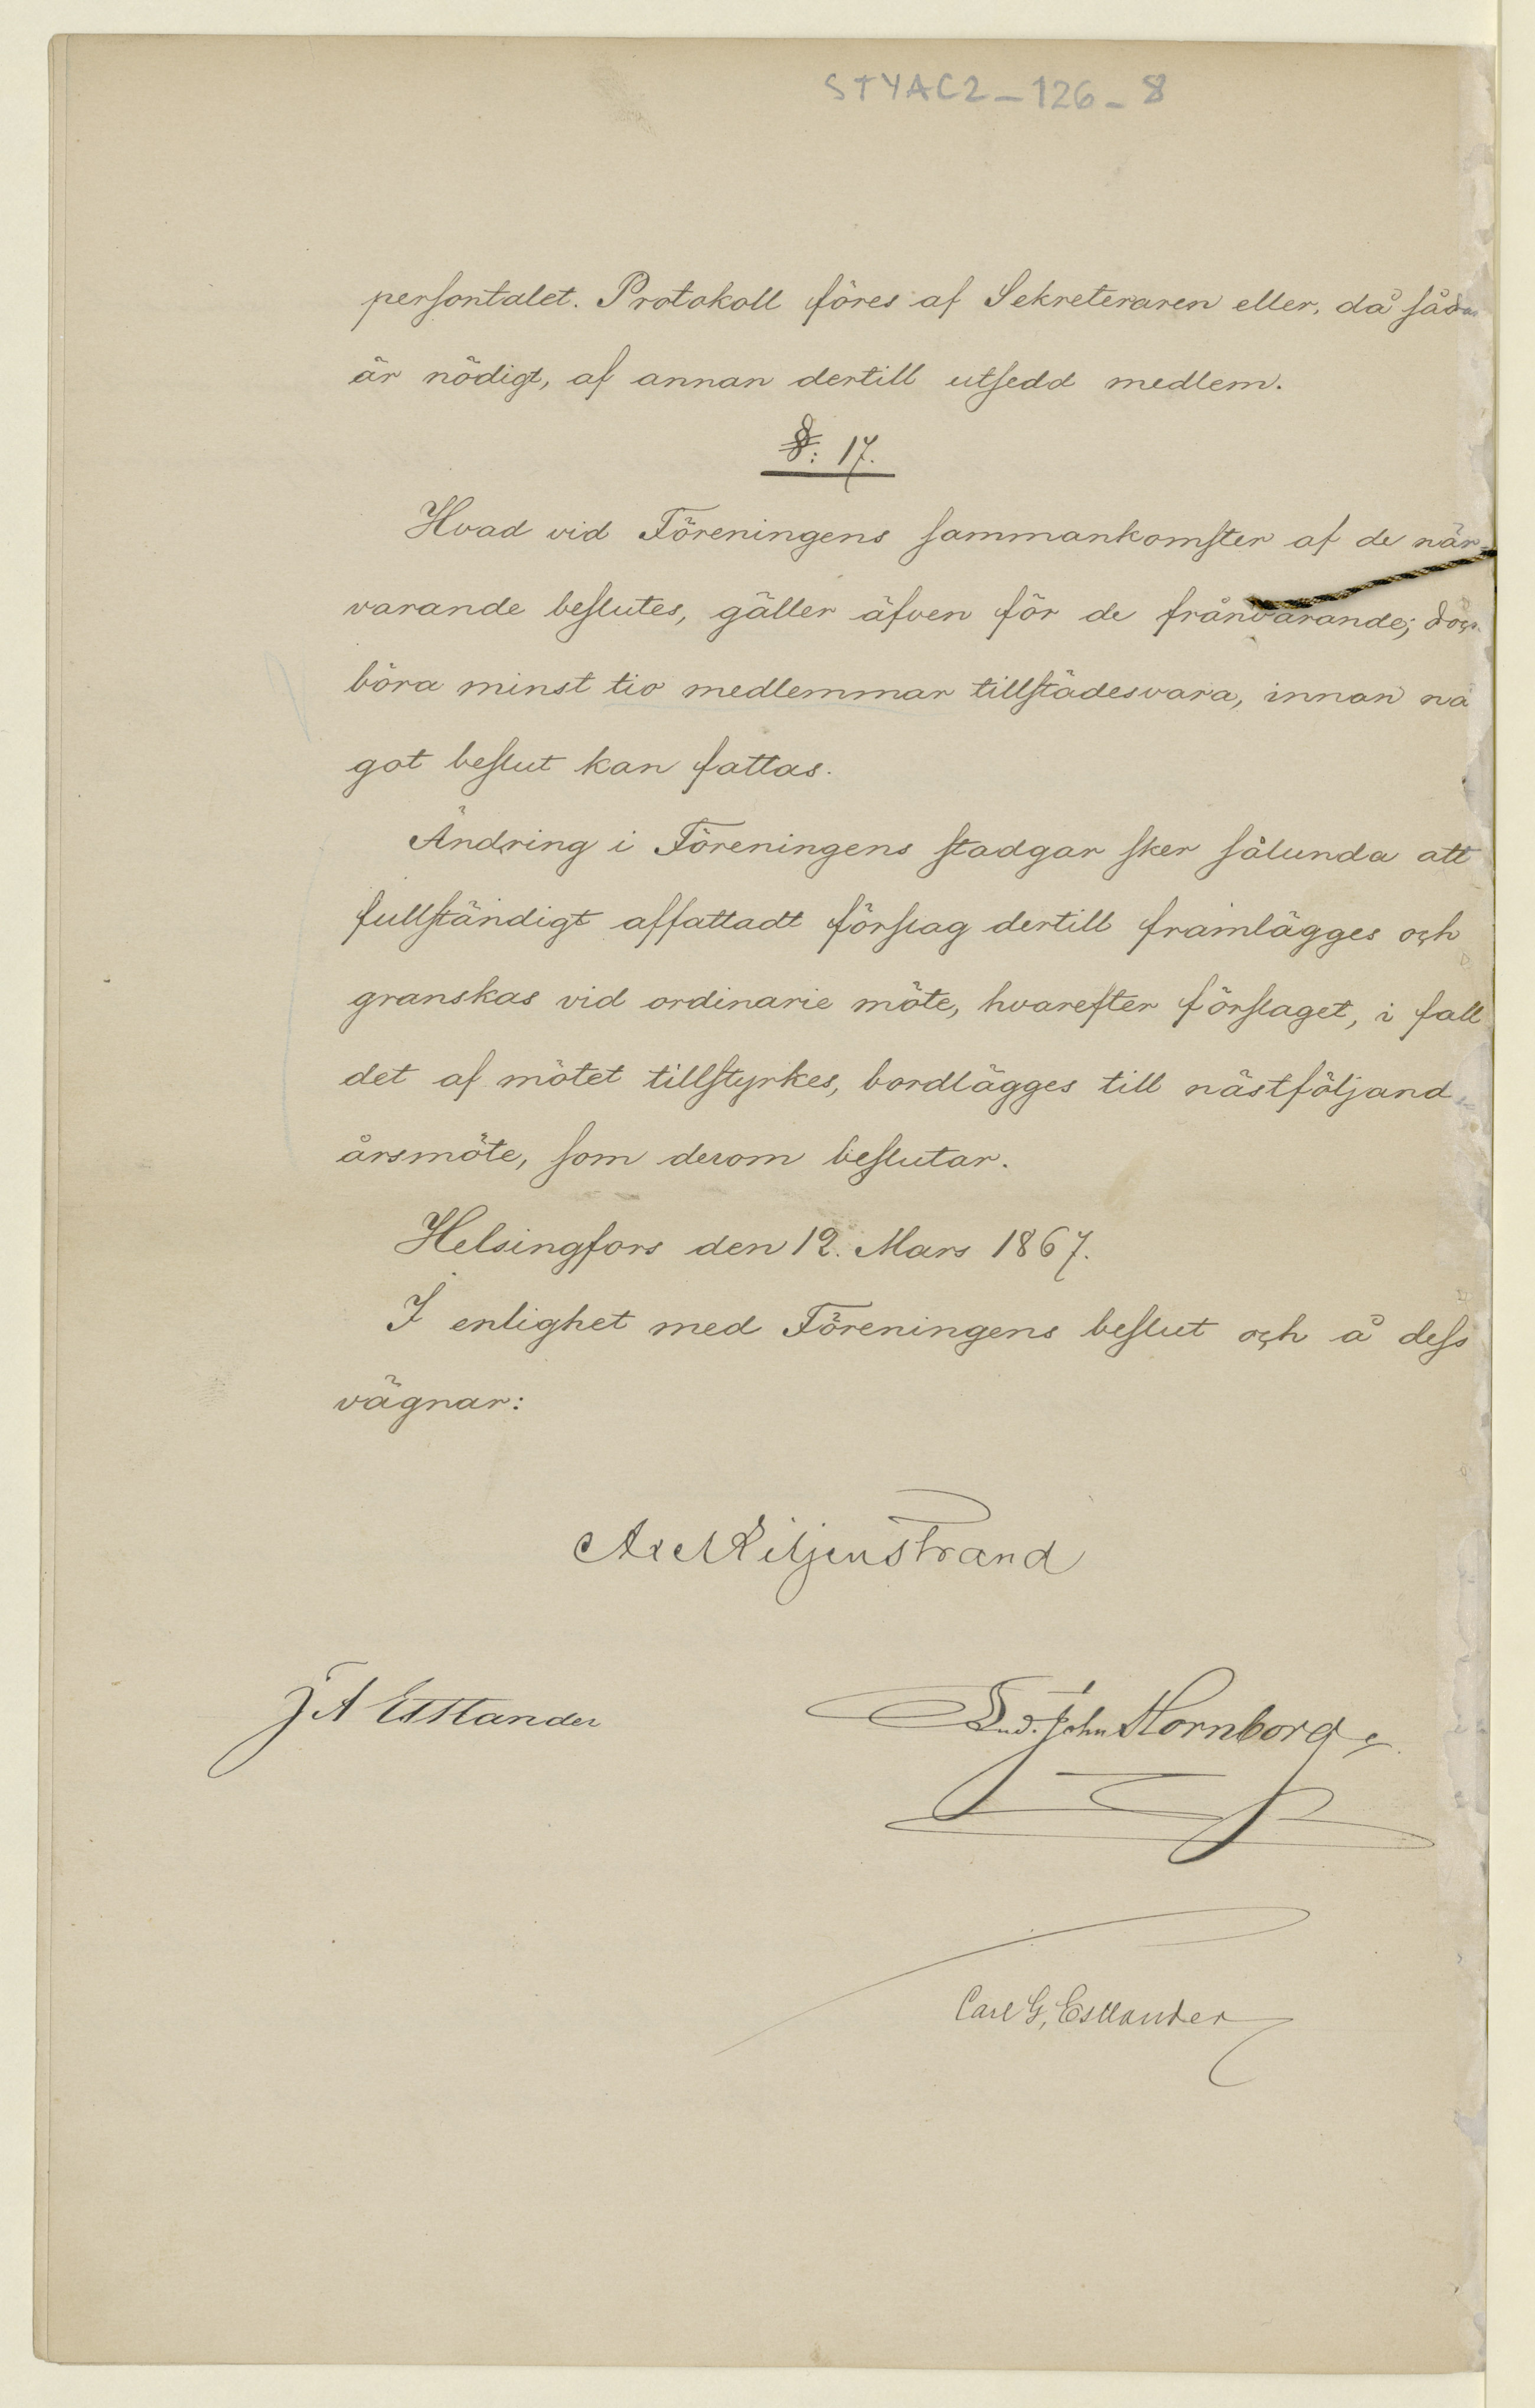 STYAC2-126-8
persontalet. Protokoll föres af Sekreteraren eller, då såda
är nödigt, af annan dertill utsedd medlem.
§: 17.
Hvad vid Föreningens sammankomster af de när-
varande beslutes, gäller äfven för de frånvarande; doch
böra minst tio medlemmar tillstädesvara, innan nå
got beslut kan fattas.
Ändring i Föreningens stadgar sker sålunda att
fullständigt affattadt förslag dertill framlägges och
granskas vid ordinarie möte, hvarefter förslaget, i fall
det af mötet tillstyrkes, bordlägges till nästföljand
årsmöte, som derom beslutar.
Helsingfors den 12. Mars 1867.
I enlighet med Föreningens beslut och å dess
vägnar:
Ax Liljenstrand
J A Estlander
Lud. John Hornborg
Carl G. Estlander